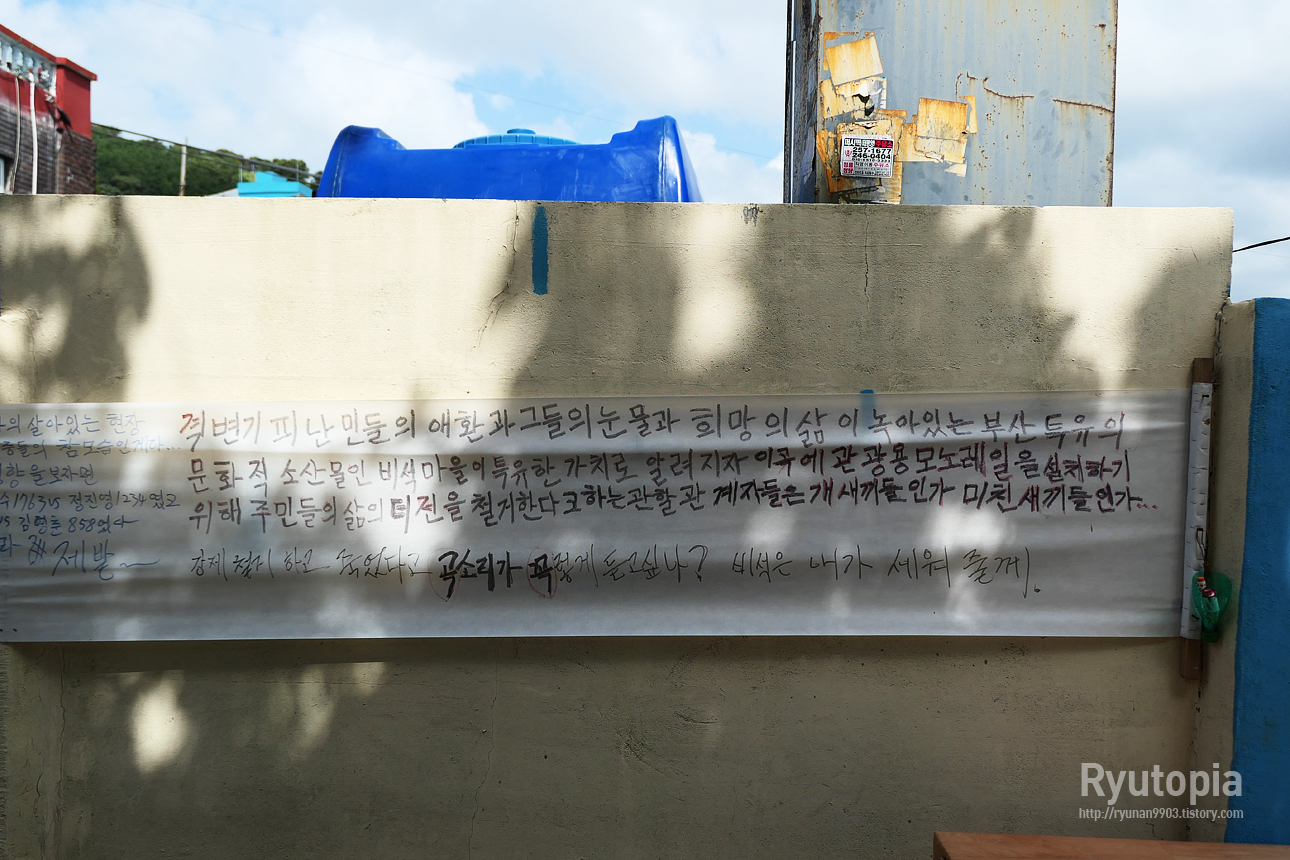 257-1677
246-0404
의 살아있는 현장
격변기 피난민들의 애환과 그들의 눈물과 희망의 삶이 녹아있는 부산 특유의
문화적 소산물인 비석마을이 특유한 가치로 알려지자 이곳에 관광용 모노레일을 설치하기
위해 주민들의 삶의 터전을 철거한다고 하는 관할 관계자들은 개새끼들인가 미친새끼들인가...
정진영 1234 였고
김영훈 858 였다
제발~
강제철거 하고 곡소리가 듣고싶나? 비석은 내가 세워 줄께.
Ryutopia
http://ryunan9903.tistory.com